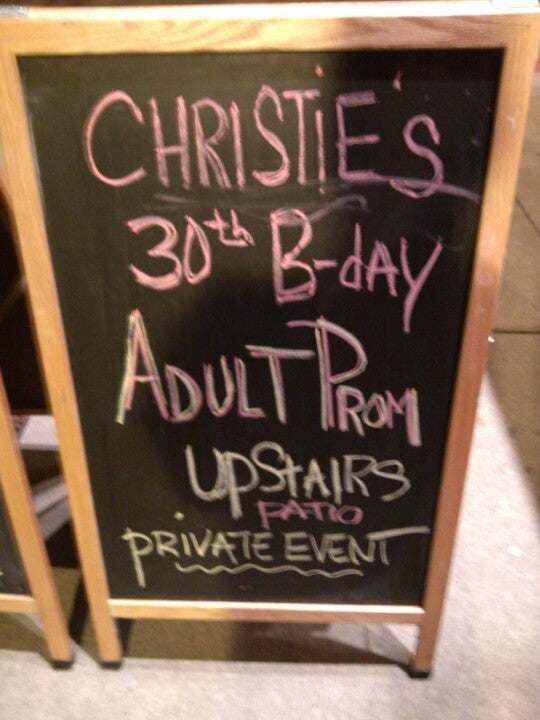 CHRISTiE's
30th B-dAY
ADULT PROM
UPStAiRS
PATIO
PRiVATE EVENT